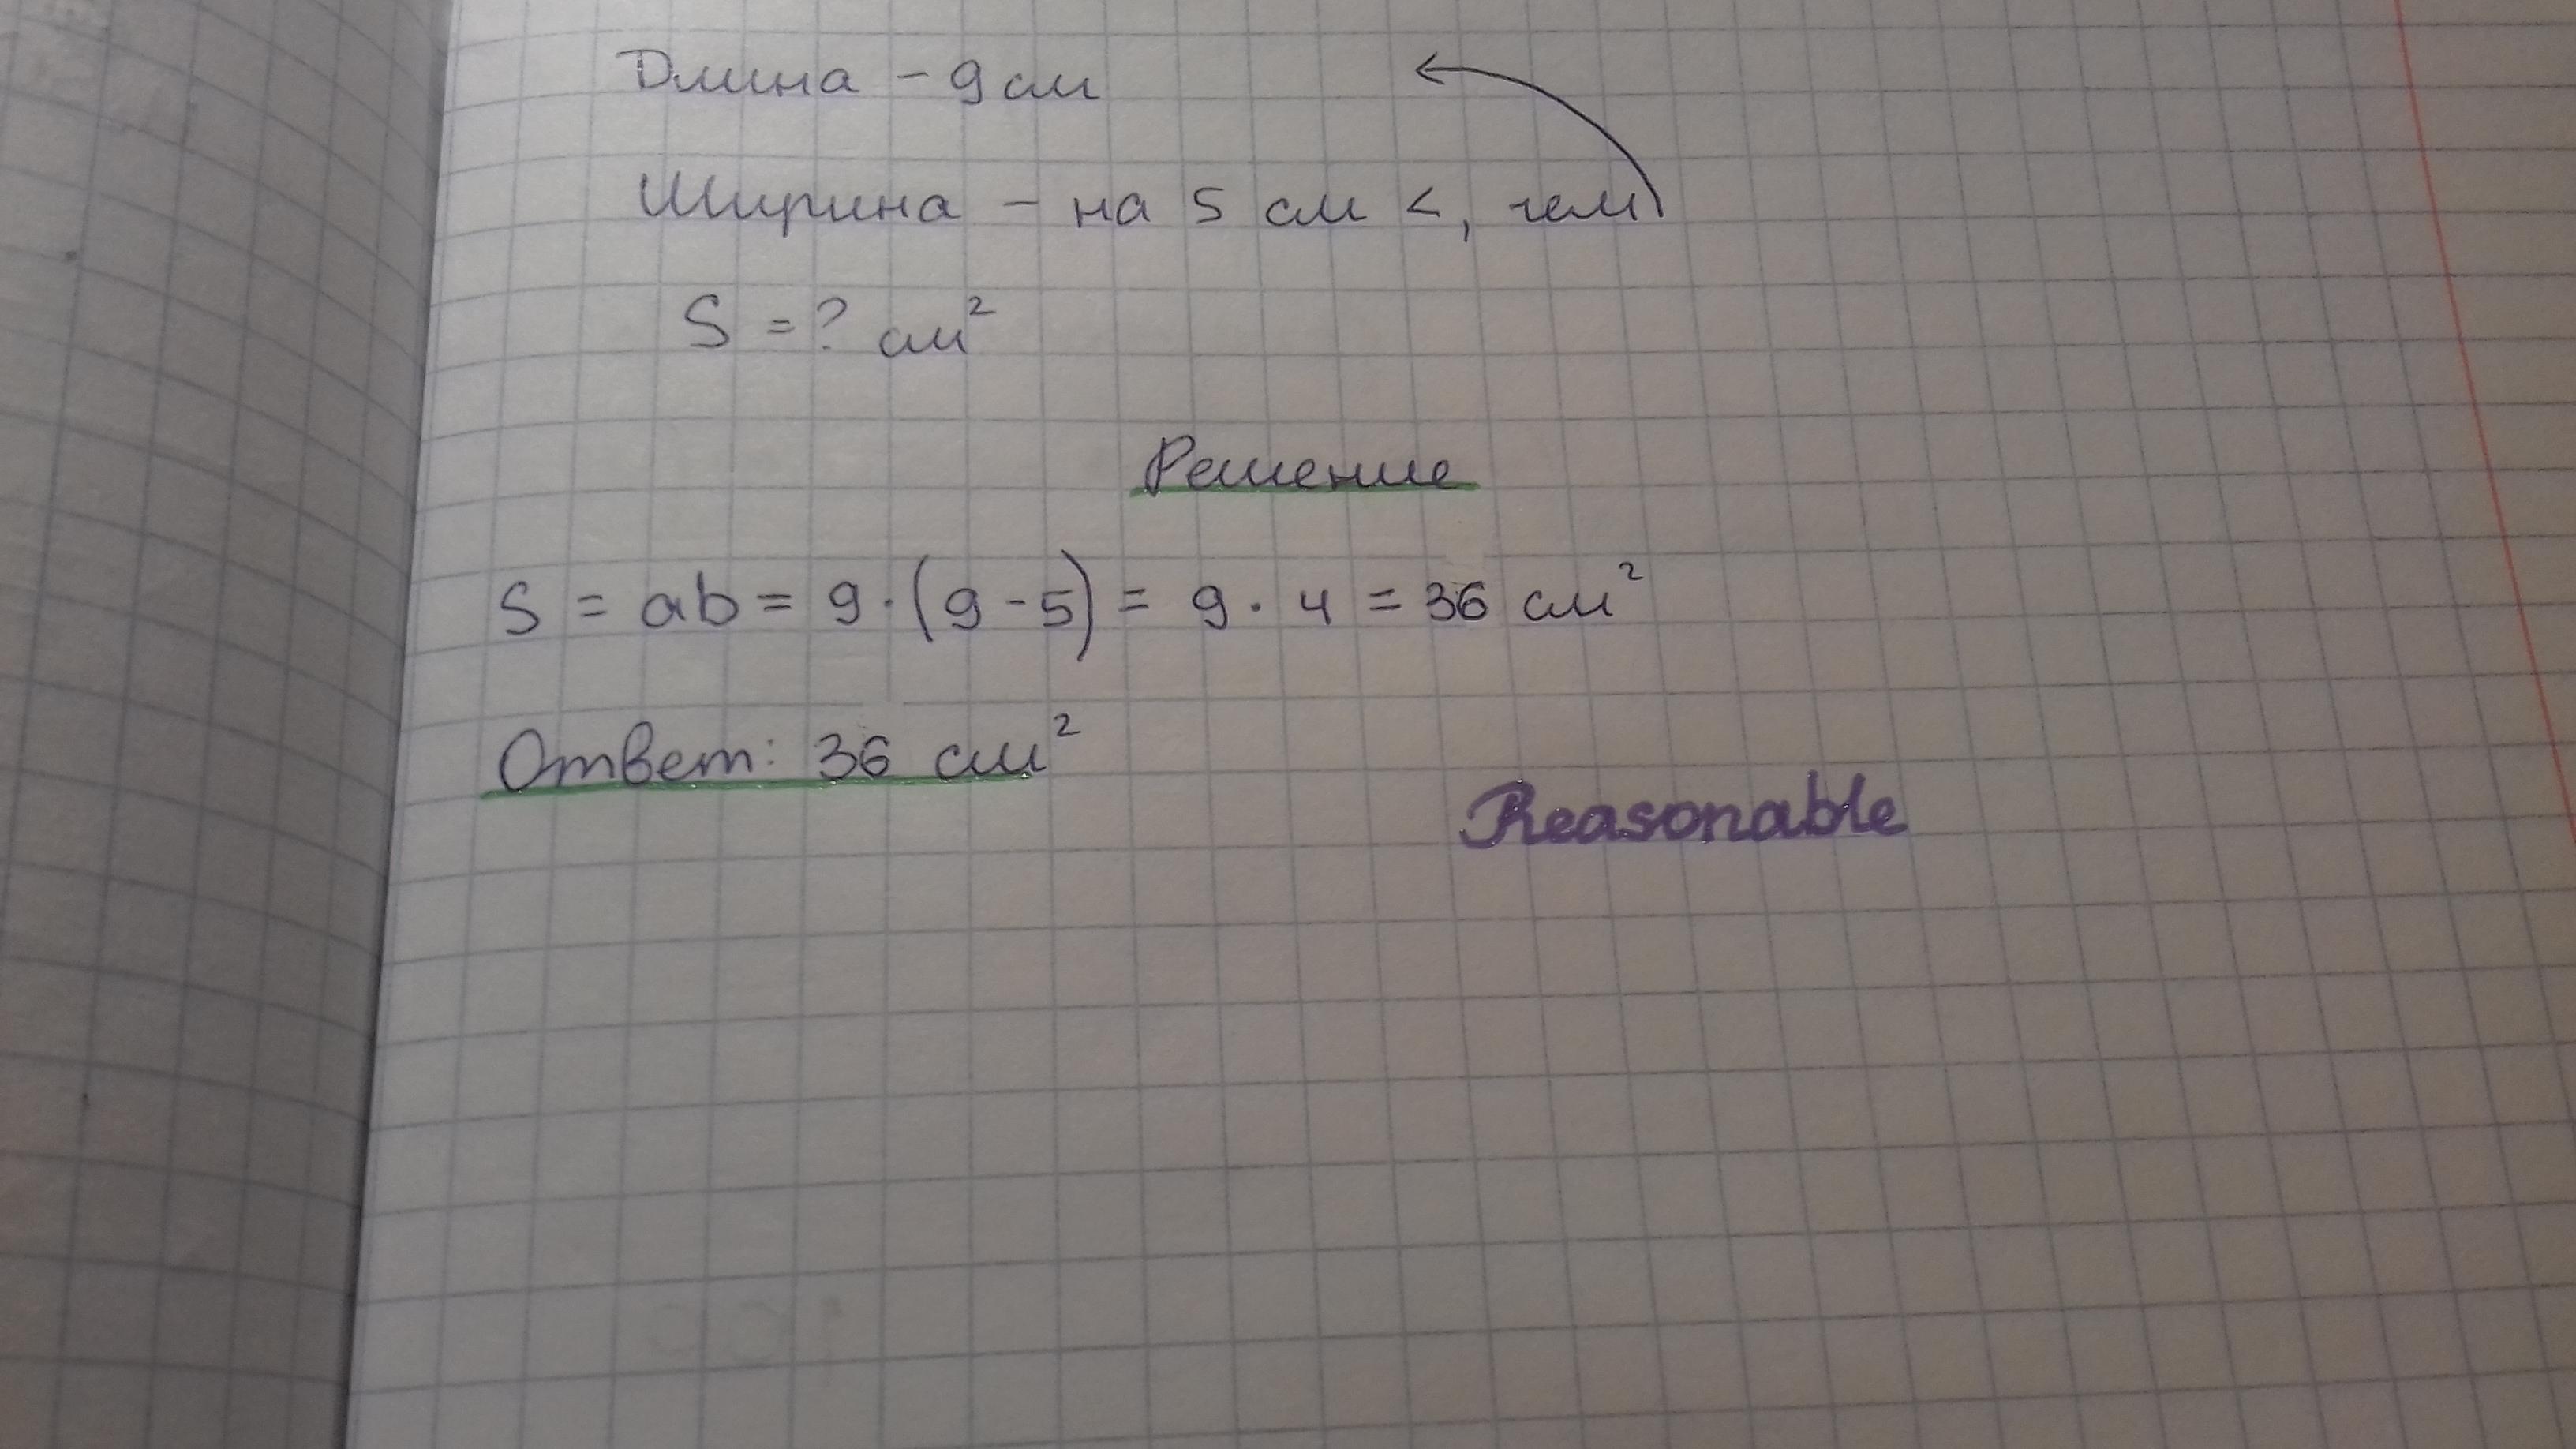 Длина - 9 см
Ширина - на 5 см <, чем
S = ? см²
Решение
S = ab = 9 · (9 - 5) = 9 · 4 = 36 см²
Ответ: 36 см²
Reasonable